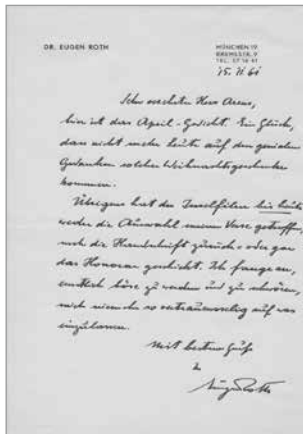 DR. EUGEN ROTH
MÜNCHEN 19
TEL. 57 16 41
15. II 61
Sehr verehrter Herr Arens,
hier ist das April-Gedicht. Ein Glück,
dass nicht mehr Leute auf den genialen
Gedanken solcher Weihnachtsgeschenke
kommen.
Übrigens hat der Inselfilm bis heute
weder die Auswahl meiner Verse getroffen,
noch die Handschrift zurück- oder gar
das Honorar geschickt. Ich fange an,
ernstlich böse zu werden und zu schwören,
mich nie mehr so vertrauensselig auf was
einzulassen.
Mit besten Grüßen
Ihr
Eugen Roth